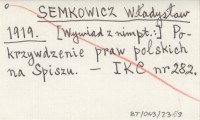 SEMKOWICZ Władysław
1919. [Wywiad z nim pt.:] Po-
krzywdzenie praw polskich
na Spiszu. – IKC nr 282.